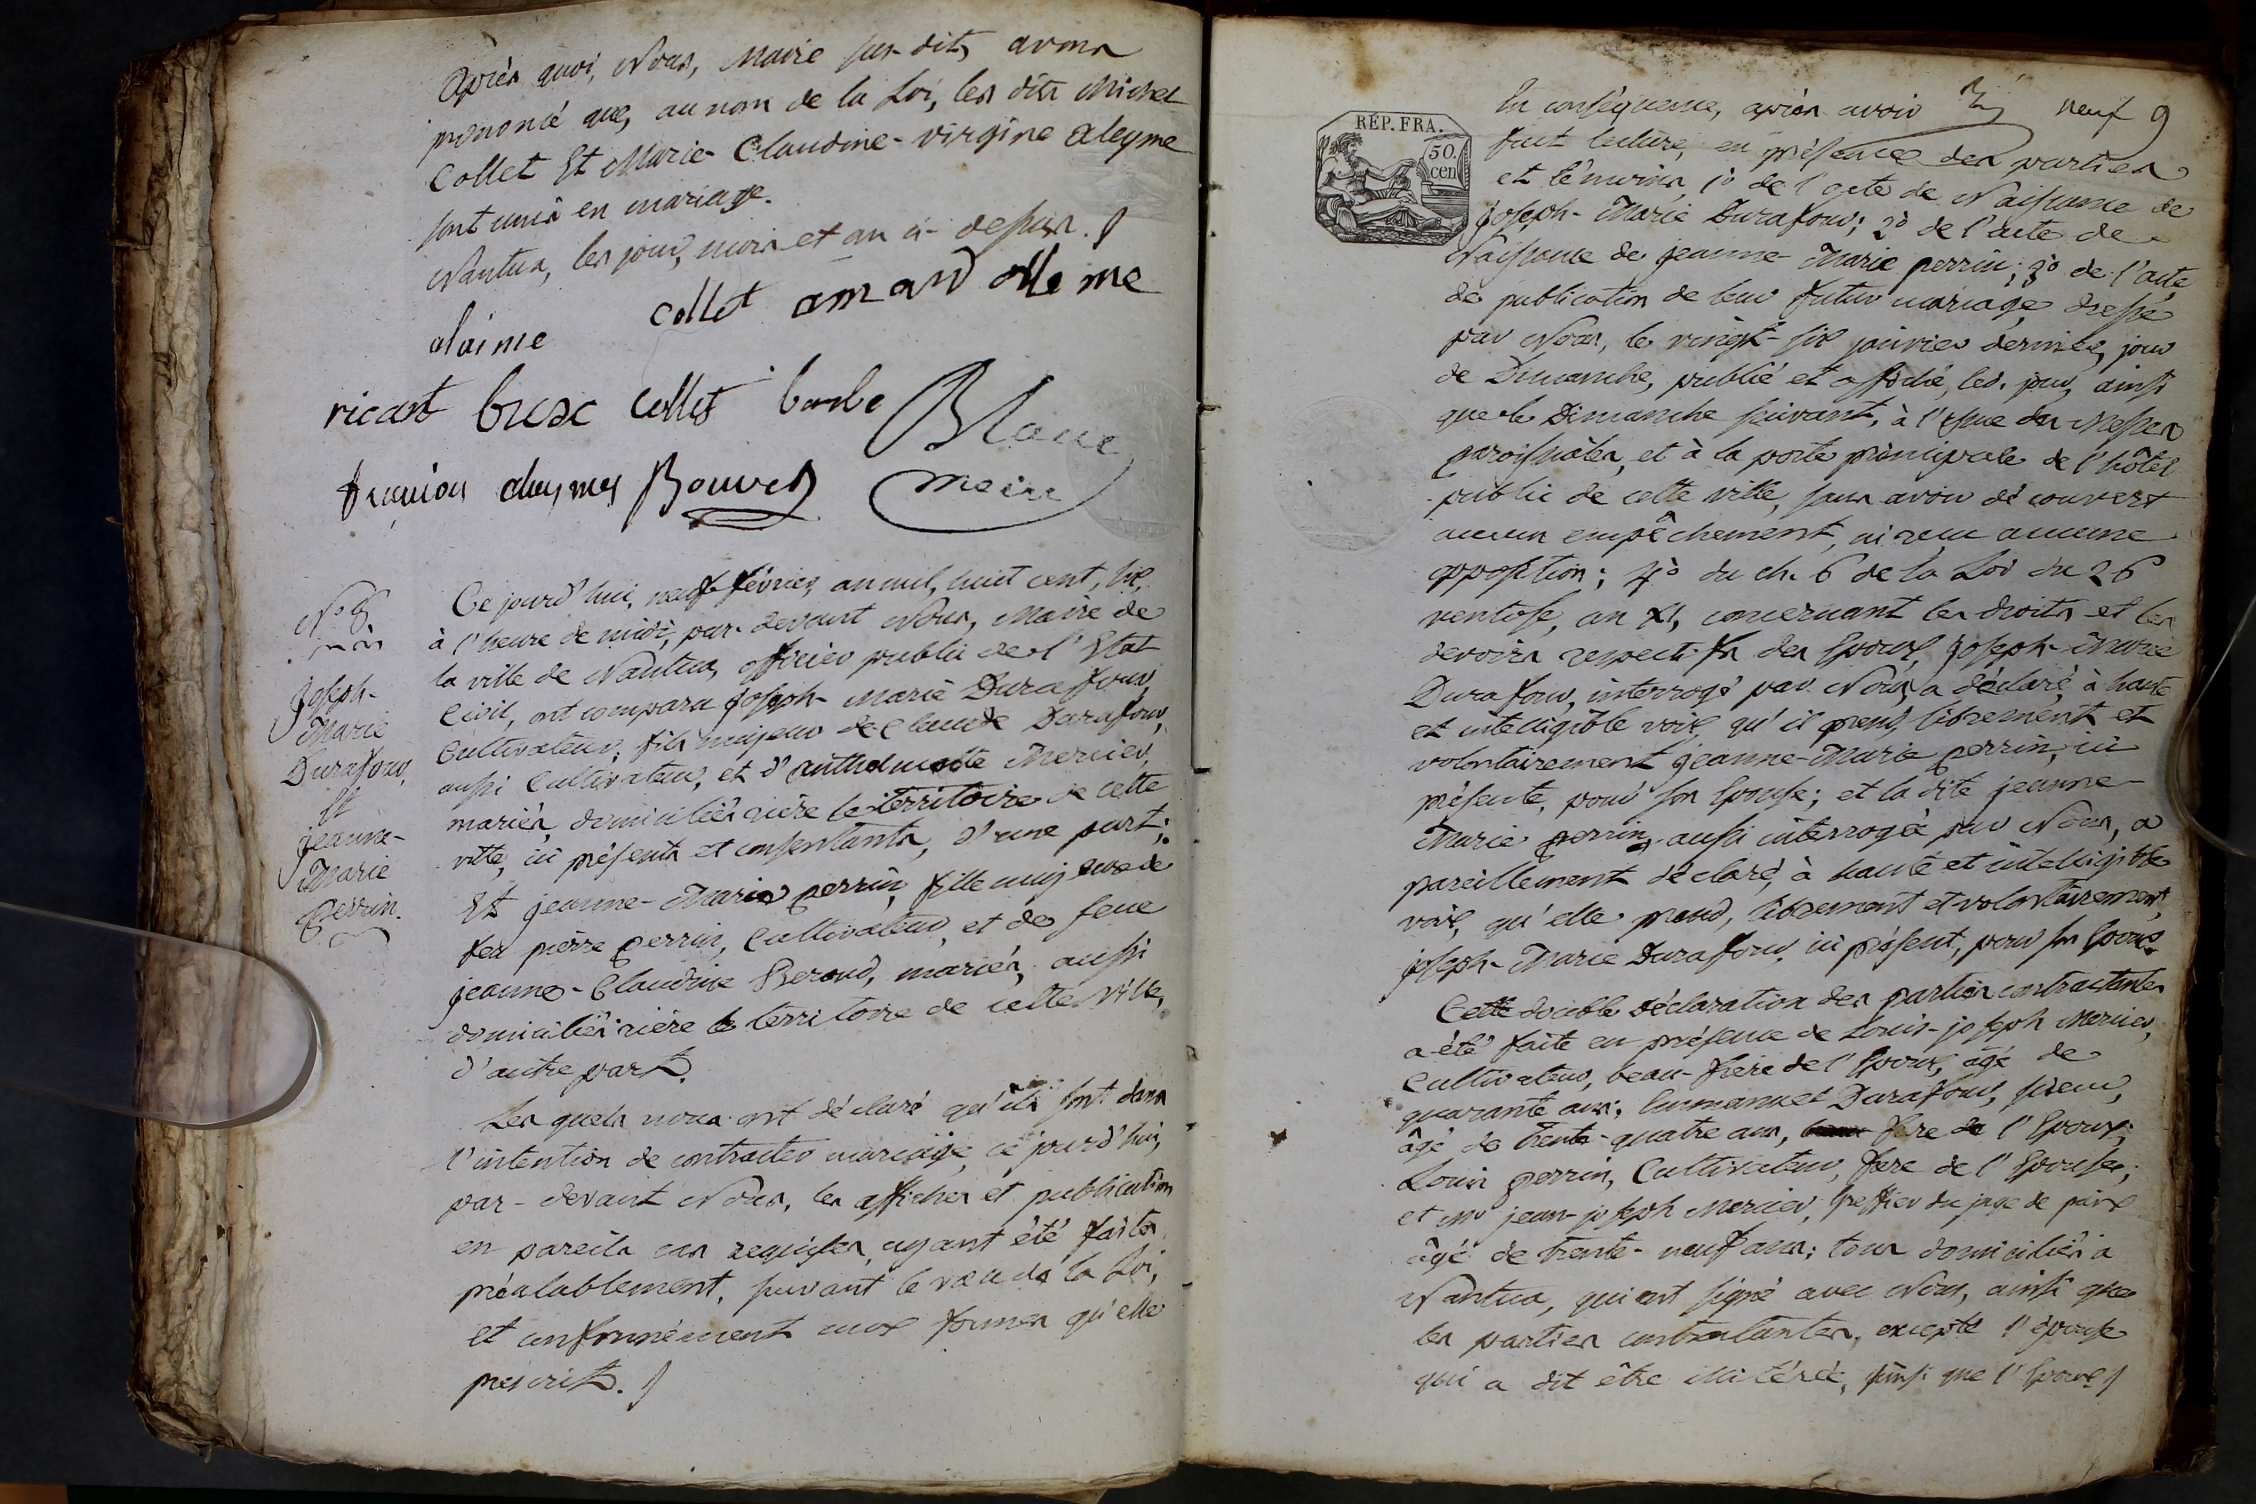 Après quoi, Nous, Maire sus-dit, avons
prononcé que, au nom de la Loi, les dits Michel
Collet Et Marie-Claudine-virgine Aleyme
sont unis en mariage.
Nantua, les jour, mois et an ci-dessus.
alaime collet amand
ricard collet barbe Blanc
Bouvet maire
N.º 6.
Joseph-
Marie
Durafour,
Et
jeanne-
Marie
Perrin.
Ce jourd'hui, neuf février, an mil, huit cent, six,
à l'heure de midi, par-devant Nous, Maire de
la ville de Nantua, officier public de l'Etat
Civil, ont comparu Joseph-Marie Durafour,
Cultivateur, fils majeur de Claude Durafour,
aussi Cultivateur, et d' Mercier,
mariés, domiciliés rière le territoire de cette
ville, ici présents et consentants, d'une part;
Et jeanne-Marie perrin, fille majeure de
feu pierre perrin, Cultivateur, et de feue
jeanne-Claudine Beroud, mariés, aussi
domiciliés rière le territoire de cette ville,
d'autre part.
Les quels nous ont déclaré qu'ils sont dans
l'intention de contracter mariage, ce jourd'hui,
par-devant Nous, les affiches et publication
en pareils cas requises, ayant été faites
préalablement, suivant le vœu de la Loi,
et conformément aux formes qu'elle
prescrit.
neuf 9
RÉP. FRA.
50.
cen
En conséquence, après avoir
fait lecture, en présence des parties
et témoins, 1º de l'acte de Naissance de
Joseph-Marie Durafour; 2º de l'acte de
Naissance de jeanne-Marie perrin; 3º de l'acte
de publication de leur futur mariage, dressé
par Nous, le vingt-six janvier dernier, jour
de Dimanche, publié et affiché, led. jour, ainsi
que le Dimanche suivant, à l'issue des Messes
paroissiales, et à la porte principale de l'hôtel
public de cette ville, sans avoir découvert
aucun empêchement, ni reçu aucune
opposition; 4º du ch. 6 de la Loi du 26
ventose, an XI, concernant les droits et les
devoirs respectifs des Epoux, Joseph-Marie
Durafour, interrogé par Nous, a déclaré, à haute
et intelligible voix, qu'il prend, librement et
volontairement jeanne-Marie perrin, ici
présente, pour son Epouse; et la dite jeanne-
Marie perrin, aussi interrogée par Nous, a
pareillement déclaré, à haute et intelligible
voix, qu'elle prend, librement et volontairement,
joseph-Marie Durafour, ici présent, pour son Epoux.
Cette double déclaration des parties contractantes
a été faite en présence de Louis-joseph Mercier,
Cultivateur, beau-frère de l'Epoux, âgé de
quarante ans; Emmanuel Durafour,
âgé de trente-quatre ans, frère de l'Epoux;
Louis perrin, Cultivateur, frère de l'Epouse;
et Mr jean-joseph Mercier, Greffier du juge de paix
âgé de trente-neuf ans; tous domiciliés à
Nantua, qui ont signé avec Nous, ainsi que
les parties contractantes, excepté l'épouse
qui a dit être illitérée, ainsi que l'Epoux